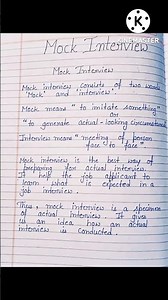 Mock Interview
Mock Interview
Mock interview consists of two words
'Mock' and interview.
Mock means "to imitate something"
or
"to generate actual-looking circumstan
Interview means "meeting of person
face to face".
Mock interview is the best way of
preparing for actual interview.
It help the job applicant to
learn what is expected in a
job interview.
Thus, mock interview is a specimen
of actual interview. It give
us an idea how an actual
interview is conducted.